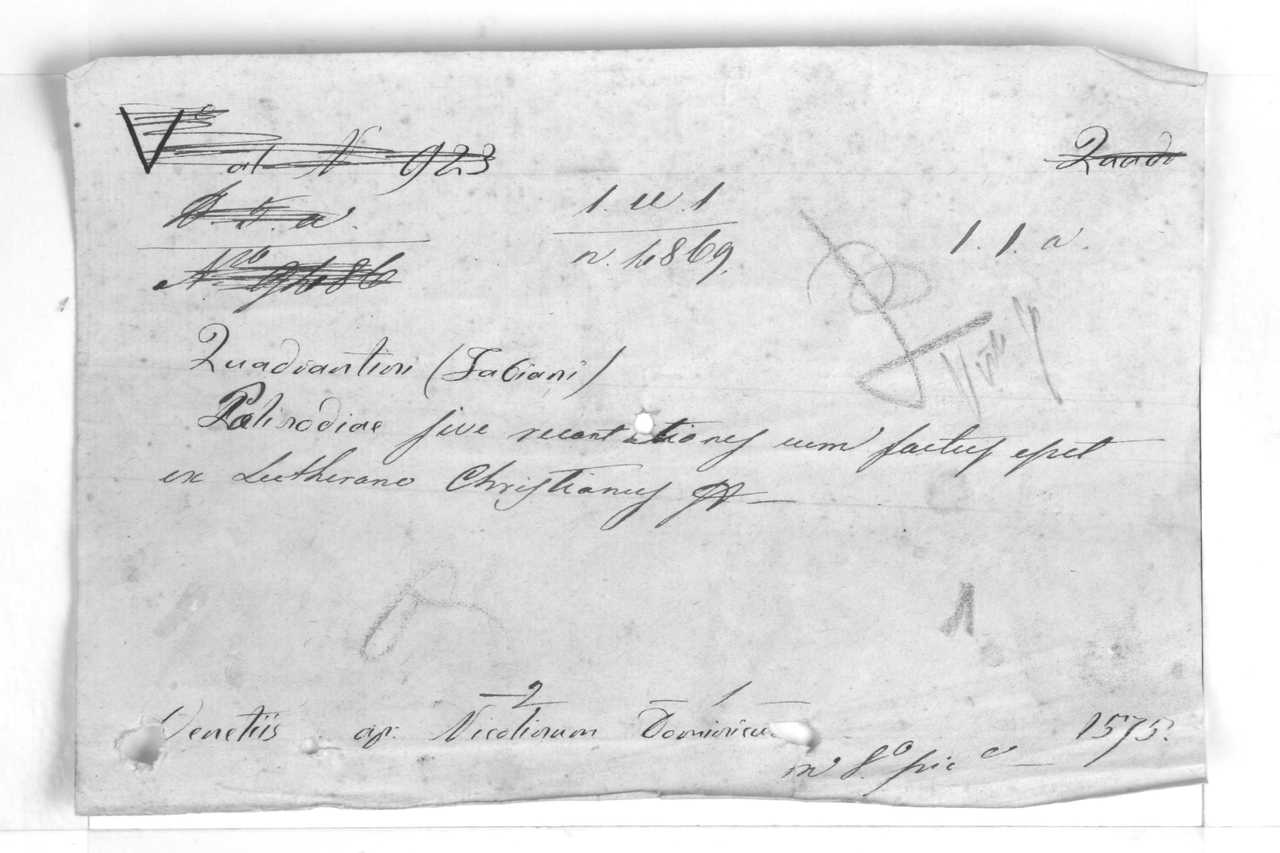 al N 923
Quadr
1. u. 1
n. 4869.
1. 1. a.
Quadrantini (Fabiani)
Palinodiae sive recantationes cum factus esset
ex Lutherano Christianus &
2 1
Venetiis ap: Nicolinum Dominicum 1575.
in 8.º pic º